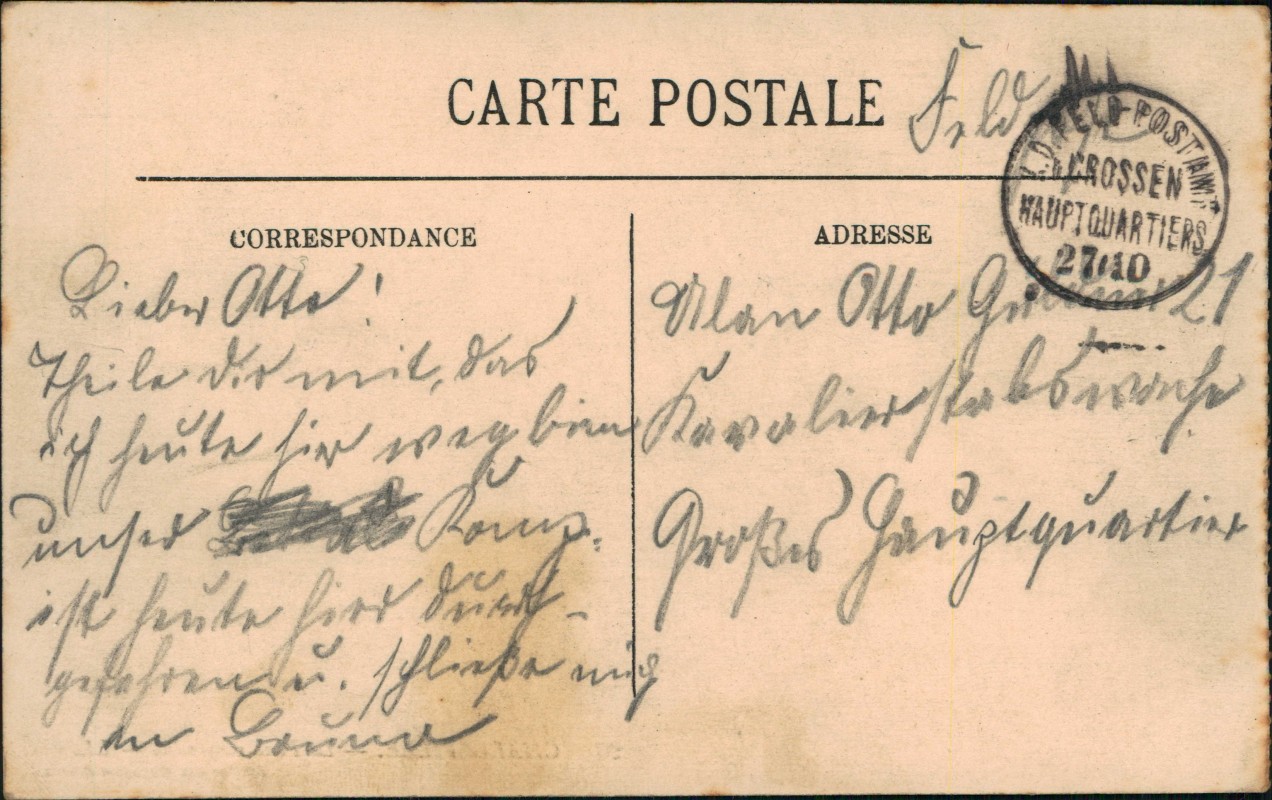 CARTE POSTALE
Feld
K.D. FELD-POSTAMT
GROSSEN
HAUPTQUARTIERS
27/10
CORRESPONDANCE
Lieber Otto!
Theile dir mit, das
ich heute hir weg bin
unser Komp.
ist heute hier durch-
gefahren u. schließe mich
an Bruno
ADRESSE
Ulan Otto 21
Kavalierstabswache
Großes Hauptquartier